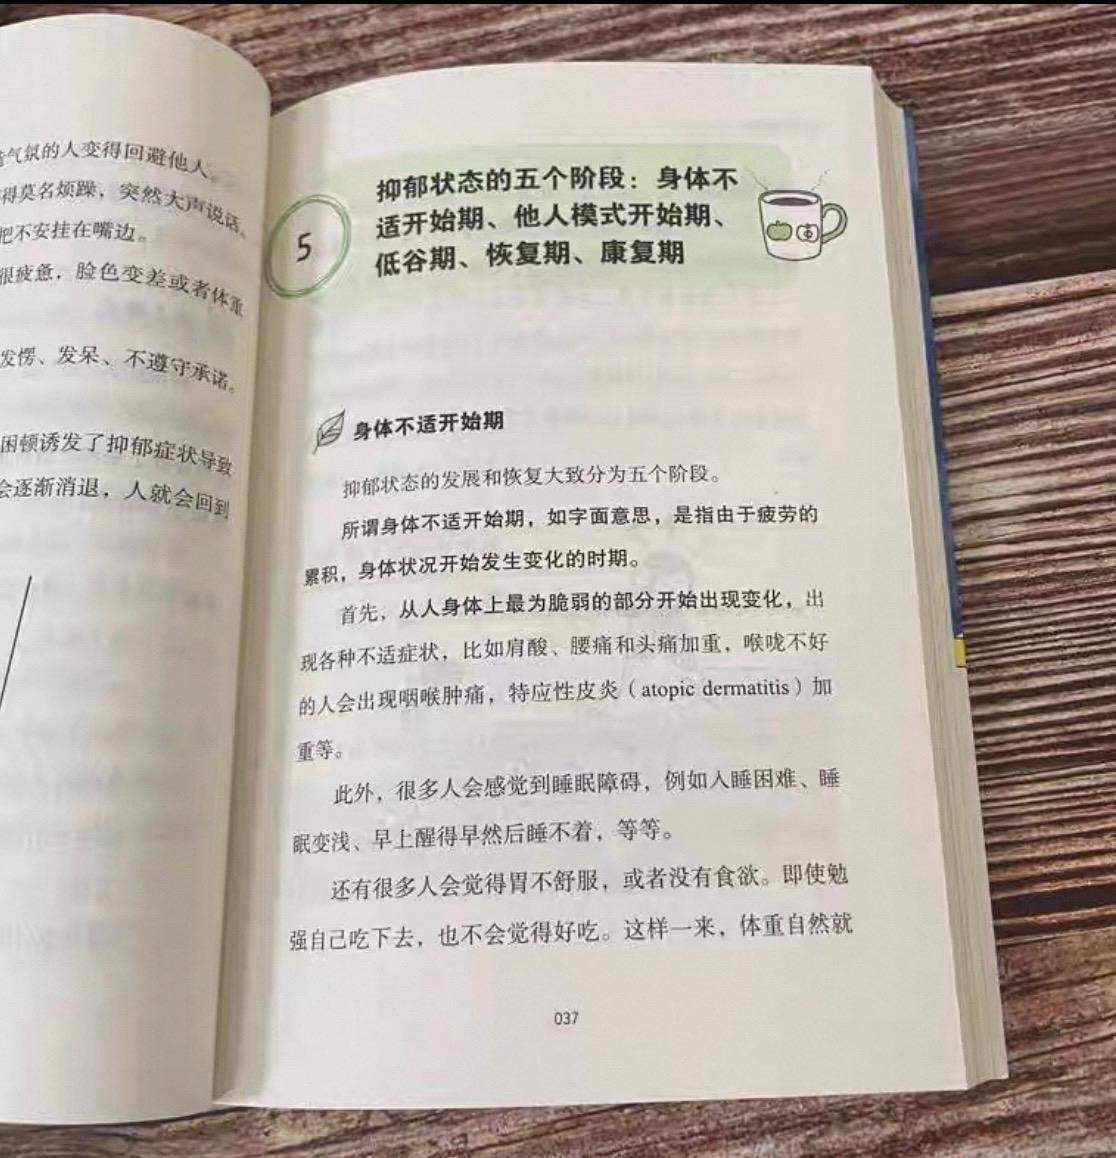 气氛的人变得回避他人。
得莫名烦躁，突然大声说话。
把不安挂在嘴边。
很疲惫，脸色变差或者体重
发愣、发呆、不遵守承诺。
困顿诱发了抑郁症状导致
会逐渐消退，人就会回到
5
抑郁状态的五个阶段：身体不
适开始期、他人模式开始期、
低谷期、恢复期、康复期
身体不适开始期
抑郁状态的发展和恢复大致分为五个阶段。
所谓身体不适开始期，如字面意思，是指由于疲劳的
累积，身体状况开始发生变化的时期。
首先，从人身体上最为脆弱的部分开始出现变化，出
现各种不适症状，比如肩酸、腰痛和头痛加重，喉咙不好
的人会出现咽喉肿痛，特应性皮炎（atopic dermatitis）加
重等。
此外，很多人会感觉到睡眠障碍，例如入睡困难、睡
眠变浅、早上醒得早然后睡不着，等等。
还有很多人会觉得胃不舒服，或者没有食欲。即使勉
强自己吃下去，也不会觉得好吃。这样一来，体重自然就
037